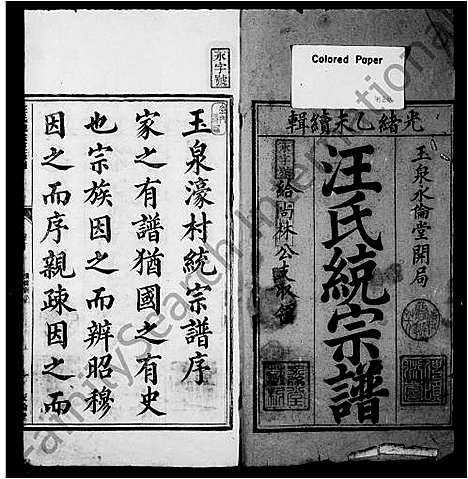 Colored Paper
光緒乙未續輯
玉泉永倫堂開局
汪氏統宗譜
永字號
給尚林公支收領
永字號
玉泉濠村統宗譜序
家之有譜猶國之有史
也宗族因之而辨昭穆
因之而序親疎因之而
FamilySearch International